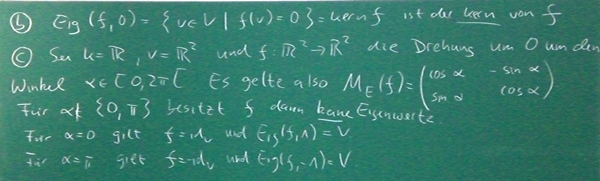 (b) Eig (f, 0) = { v ∈ V | f(v) = 0 } = kern f ist der kern von f
(c) Sei k = ℝ, V = ℝ² und f: ℝ² → ℝ² die Drehung um 0 um den
Winkel α ∈ [0, 2π[ Es gelte also M_E(f) = ( cos α  - sin α
sin α  cos α )
Für α ∉ {0, π} besitzt f dann keine Eigenwerte
Für α = 0 gilt f = id_V und Eig(f, 1) = V
Für α = π gilt f = -id_V und Eig(f, -1) = V.